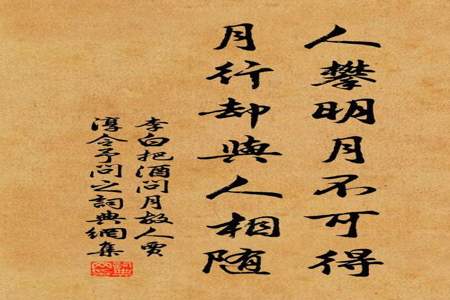 人攀明月不可得
月行却與人相随
李白把酒问月故人贾
淳令予问之詞典網集